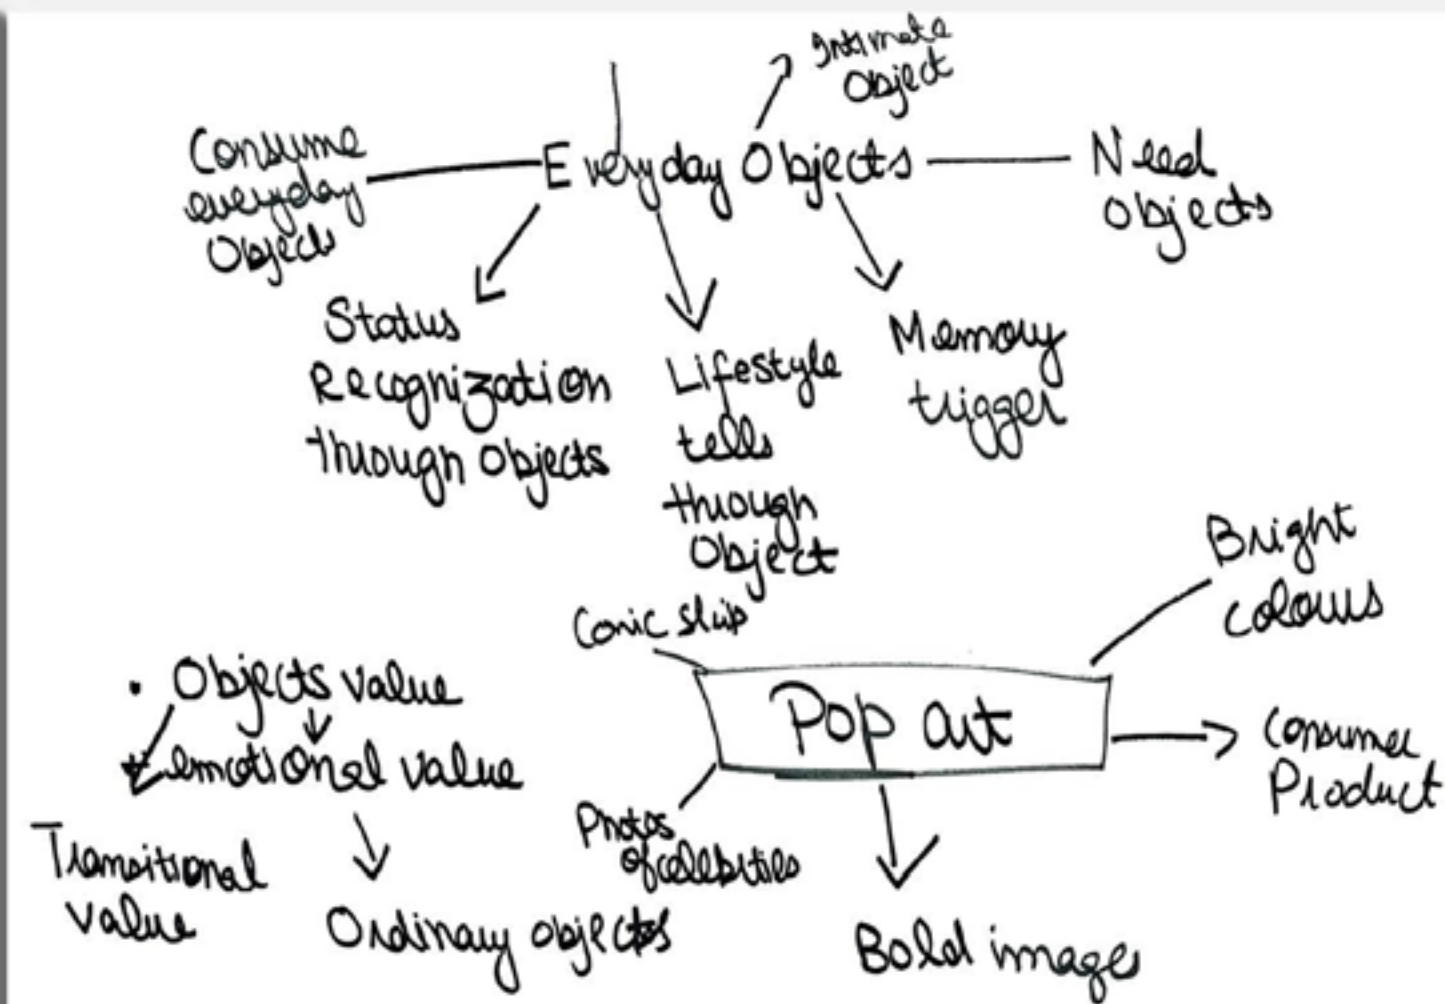 Intimate
Object
Consume
everyday
Objects
Everyday Objects
Need
objects
Status
Recognization
through Objects
Lifestyle
tells
through
Object
Memory
trigger
Bright
colours
Comic strip
Pop art
Consumer
Product
Photos
of celebrities
Bold images
. Objects value
emotional value
Transitional
value
Ordinary objects